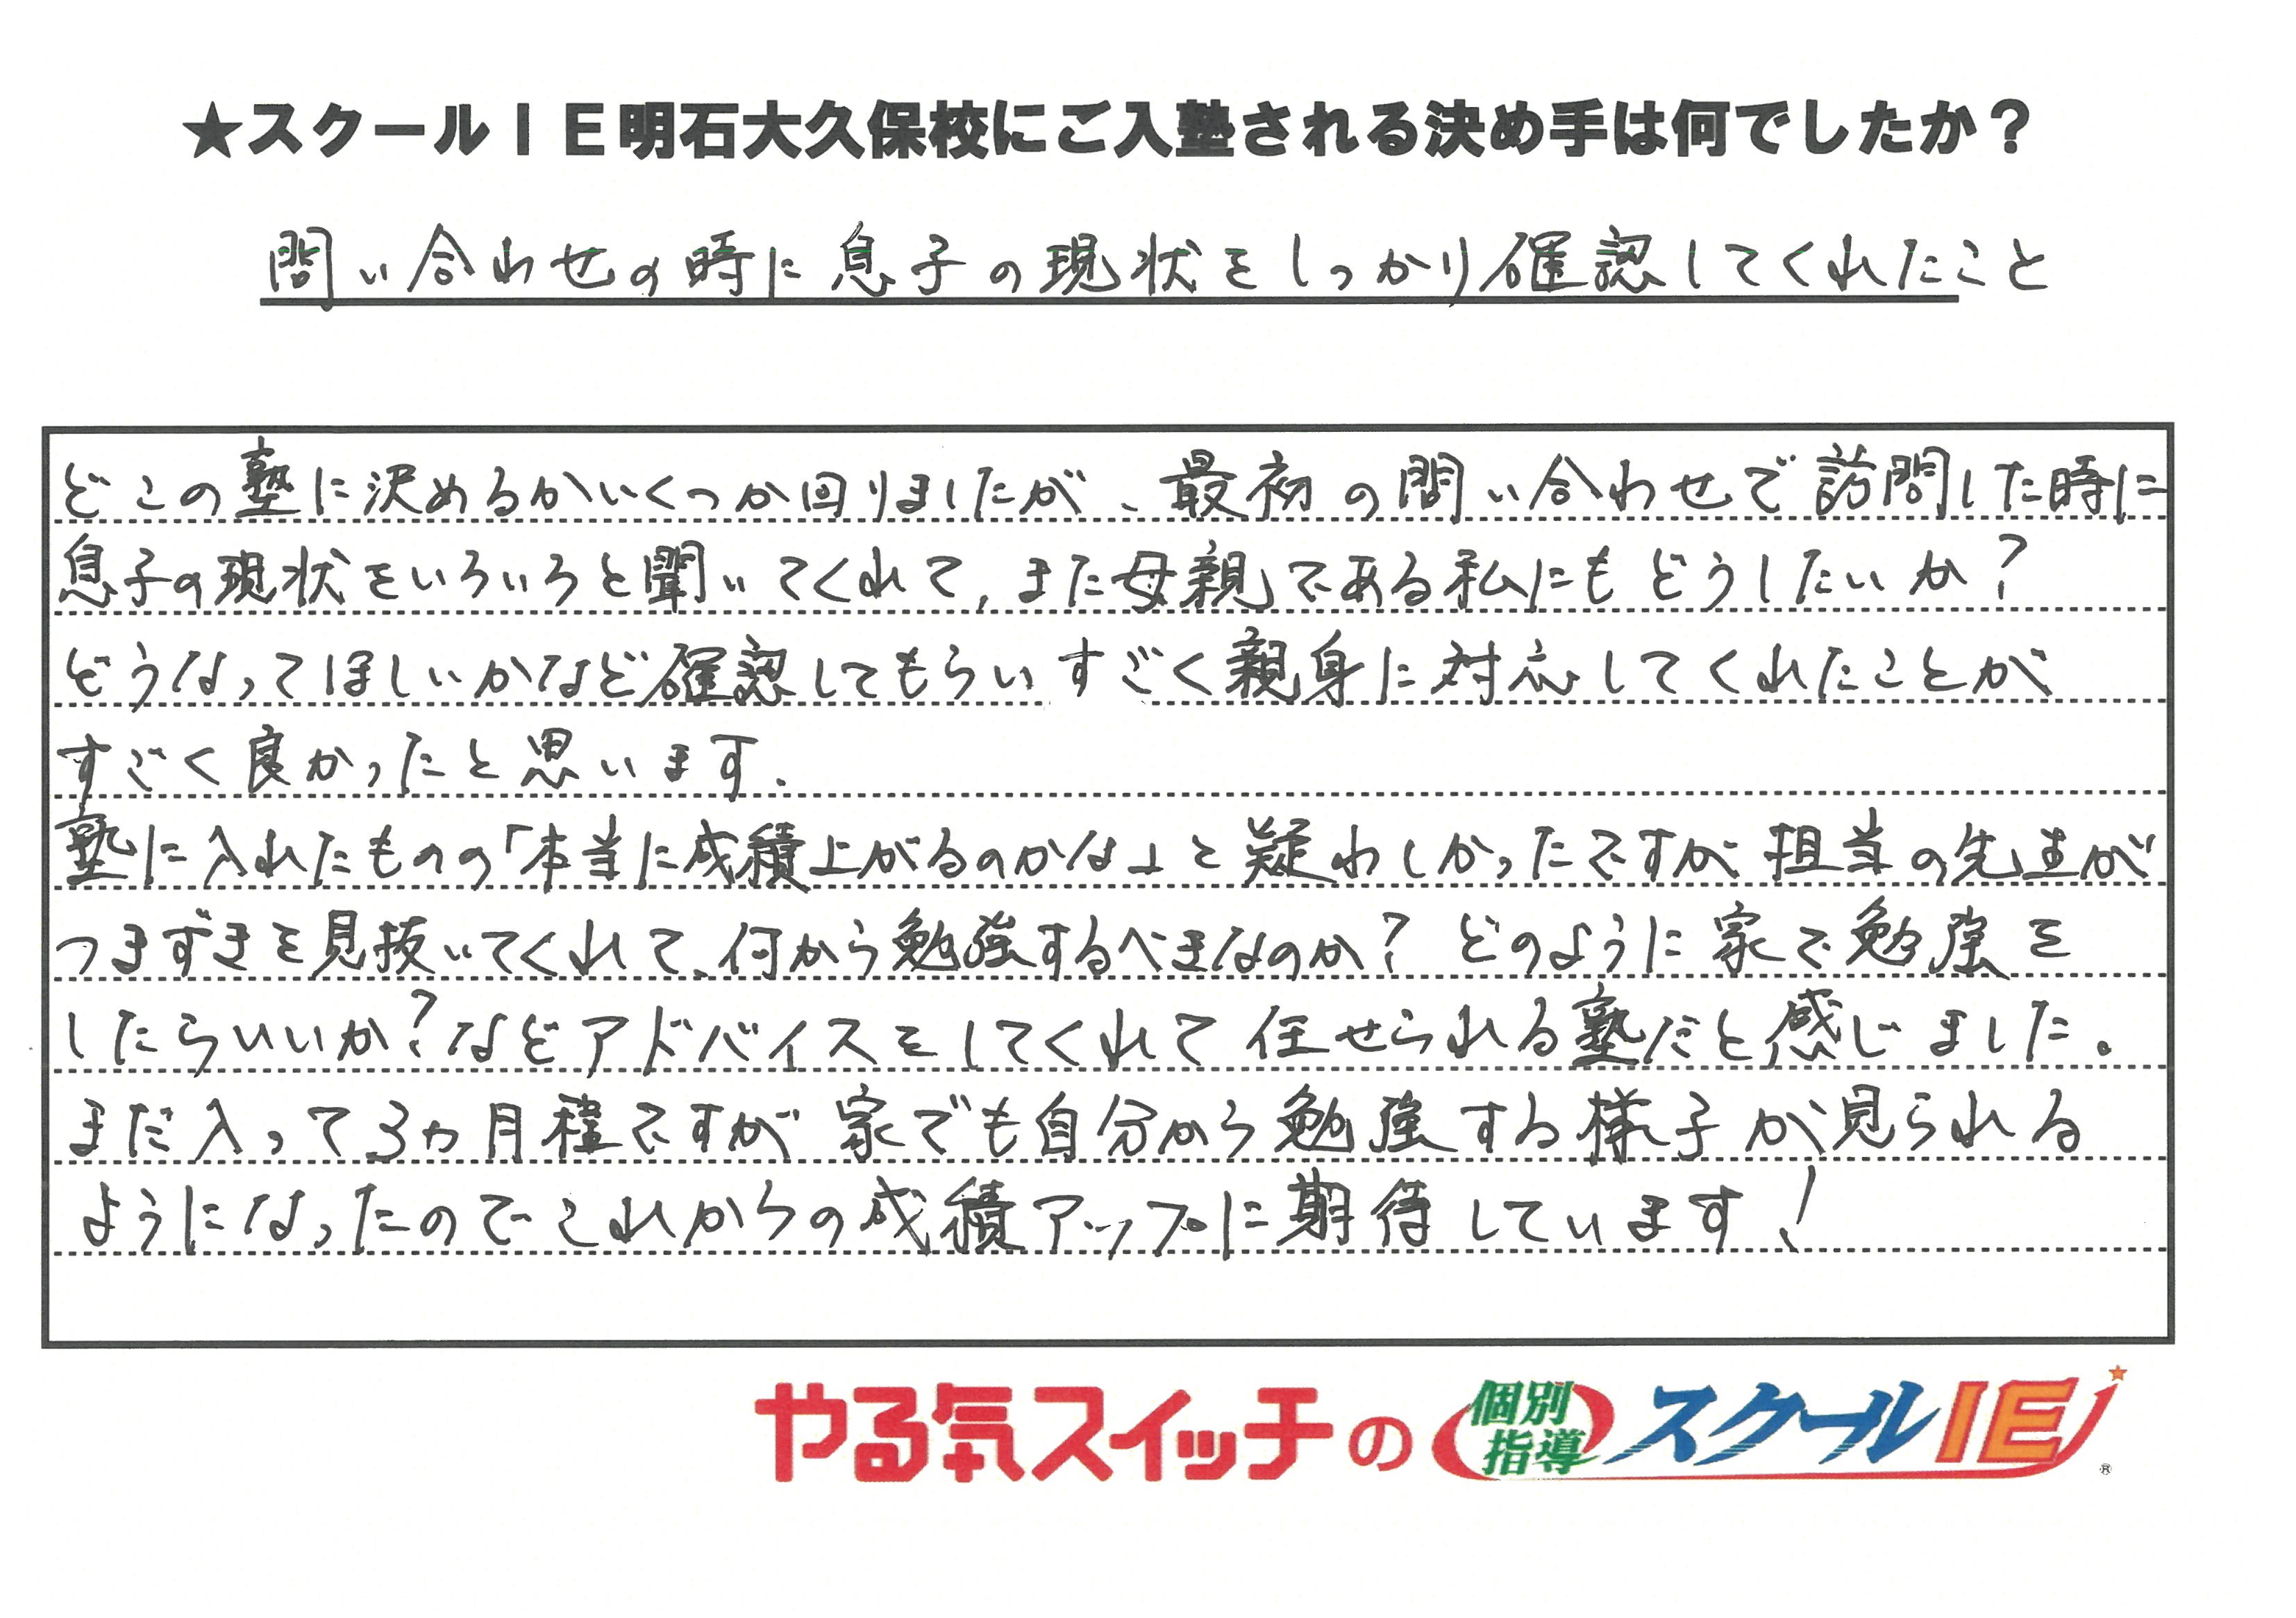 ★スクールＩＥ明石大久保校にご入塾される決め手は何でしたか？
問い合わせの時に息子の現状をしっかり確認してくれたこと
どこの塾に決めるかいくつか回りましたが、最初の問い合わせで訪問した時に
息子の現状をいろいろと聞いてくれて、また母親である私にもどうしたいか？
どうなってほしいかなど確認してもらいすごく親身に対応してくれたことが
すごく良かったと思います.
塾に入れたものの「本当に成積上がるのかな」と疑わしかったですが担当の先生が
つまずきを見抜いてくれて、何から勉強するべきなのか？どのように家で勉強を
したらいいか？などアドバイスをしてくれて任せられる塾だと感じました。
まだ入って3ヵ月程ですが家でも自分から勉強する様子が見られる
ようになったのでこれからの成積アップに期待しています！
やる気スイッチの 個別指導 スクールIE ®